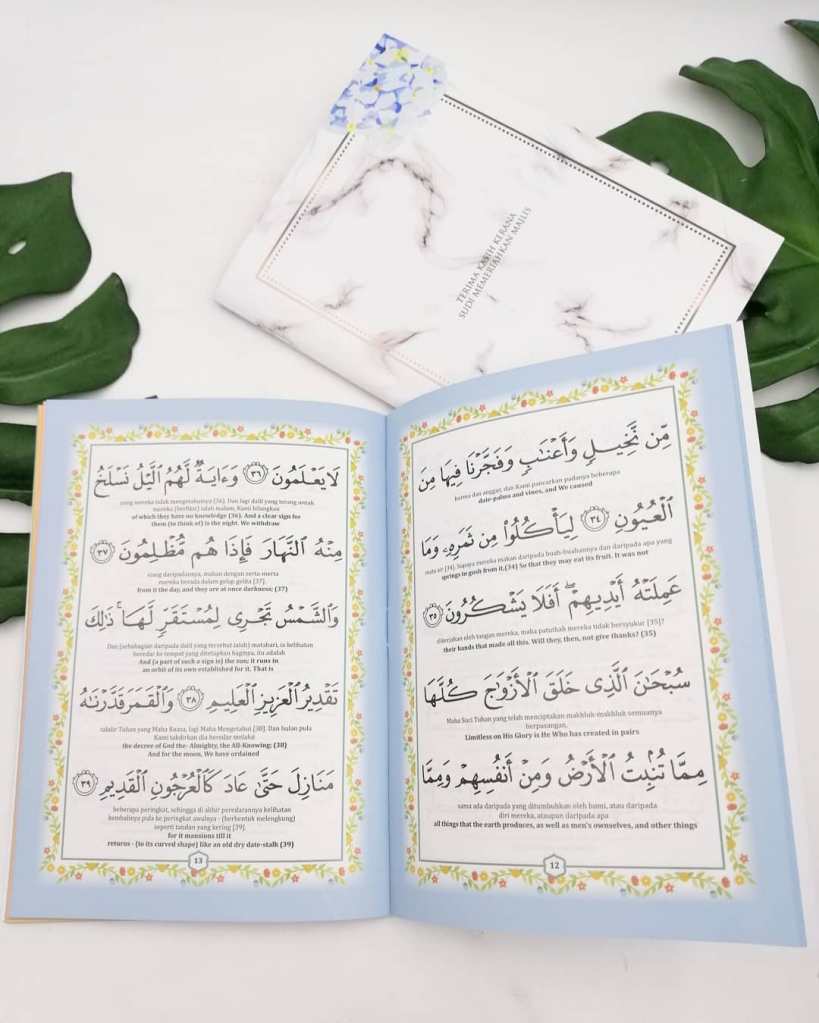 TERIMA KASIH KERANA
SUDI MEMERIAHKAN MAJLIS
مِّن نَّخِيلٍ وَأَعْنَٰبٍ وَفَجَّرْنَا فِيهَا مِنَ
kurma dan anggur, dan Kami pancarkan padanya beberapa
date-palms and vines, and We caused
ٱلْعُيُونِ ٣٤ لِيَأْكُلُوا۟ مِن ثَمَرِهِۦ وَمَا
mata air [34]. Supaya mereka makan daripada buah-buahannya dan daripada apa yang
springs to gush from it.(34) So that they may eat its fruit. It was not
عَمِلَتْهُ أَيْدِيهِمْ ۖ أَفَلَا يَشْكُرُونَ ٣٥
dikerjakan oleh tangan mereka, maka patutkah mereka tidak bersyukur [35]?
their hands that made all this. Will they, then, not give thanks? (35)
سُبْحَٰنَ ٱلَّذِى خَلَقَ ٱلْأَزْوَٰجَ كُلَّهَا
Maha Suci Tuhan yang telah menciptakan makhluk-makhluk semuanya
berpasangan,
Limitless on His Glory is He Who has created in pairs
مِمَّا تُنۢبِتُ ٱلْأَرْضُ وَمِنْ أَنفُسِهِمْ وَمِمَّا
sama ada daripada yang ditumbuhkan oleh bumi, atau daripada
diri mereka, ataupun daripada apa
all things that the earth produces, as well as men's ownselves, and other things
12
لَا يَعْلَمُونَ ٣٦ وَءَايَةٌ لَّهُمُ ٱلَّيْلُ نَسْلَخُ
yang mereka tidak mengetahuinya [36]. Dan lagi dalil yang terang untuk
mereka (berfikir) ialah malam, Kami hilangkan
of which they have no knowledge (36). And a clear sign for
them (to think of) is the night. We withdraw
مِنْهُ ٱلنَّهَارَ فَإِذَا هُم مُّظْلِمُونَ ٣٧
siang daripadanya, makan dengan serta-merta
mereka berada dalam gelap-gelita [37].
from it the day, and they are at once darkness; (37)
وَٱلشَّمْسُ تَجْرِى لِمُسْتَقَرٍّ لَّهَا ۚ ذَٰلِكَ
Dan (sebahagian daripada dalil yang tersebut ialah) matahari, ia kelihatan
beredar ke tempat yang ditetapkan baginya, itu adalah
And (a part of such a sign is) the sun; it runs in
an orbit of its own established for it. That is
تَقْدِيرُ ٱلْعَزِيزِ ٱلْعَلِيمِ ٣٨ وَٱلْقَمَرَ قَدَّرْنَٰهُ
takdir Tuhan yang Maha Kuasa, lagi Maha Mengetahui [38]. Dan bulan pula
Kami takdirkan dia beredar melalui
the decree of God the- Almighty, the All-Knowing; (38)
And for the moon, We have ordained
مَنَازِلَ حَتَّىٰ عَادَ كَٱلْعُرْجُونِ ٱلْقَدِيمِ ٣٩
beberapa peringkat, sehingga di akhir peredarannya kelihatan
kembalinya pula ke peringkat awalnya - (berbentuk melengkung)
seperti tandan yang kering [39].
for it mansions till it
returns - (to its curved shape) like an old dry date-stalk (39)
13